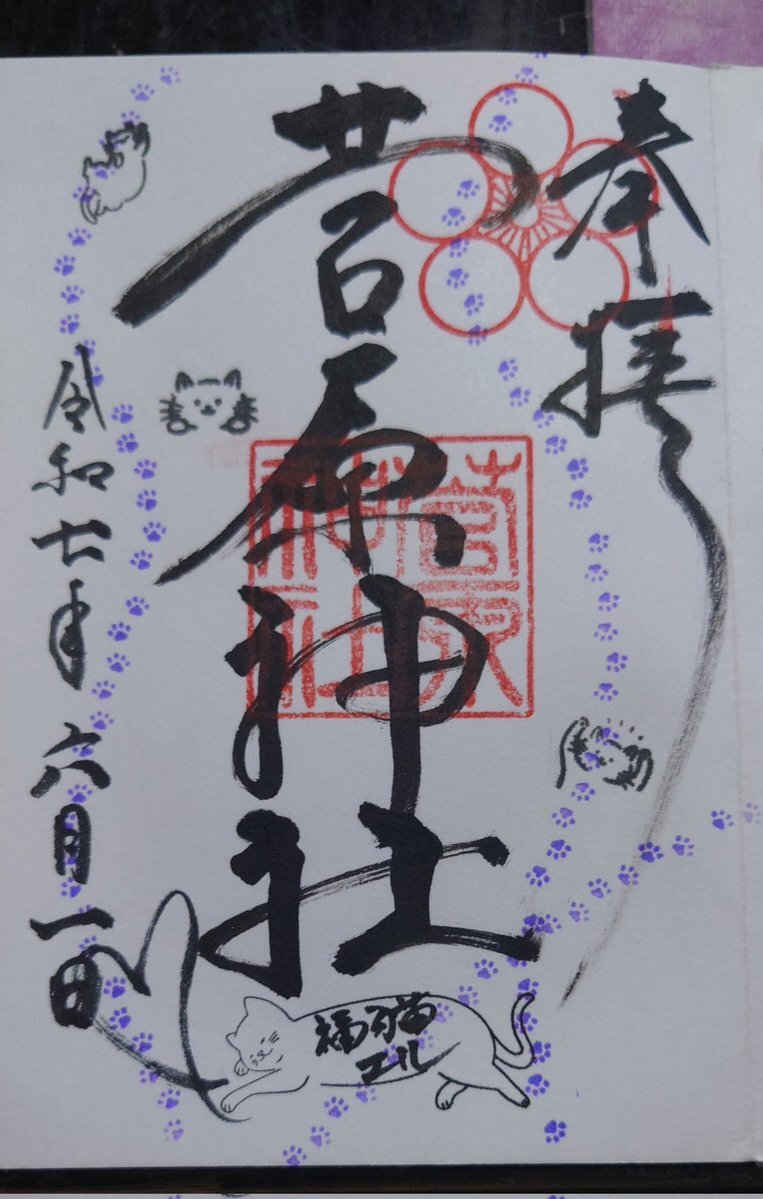 奉拝
菅原神社
菅原
神社
令和七年六月一日
福猫
エル